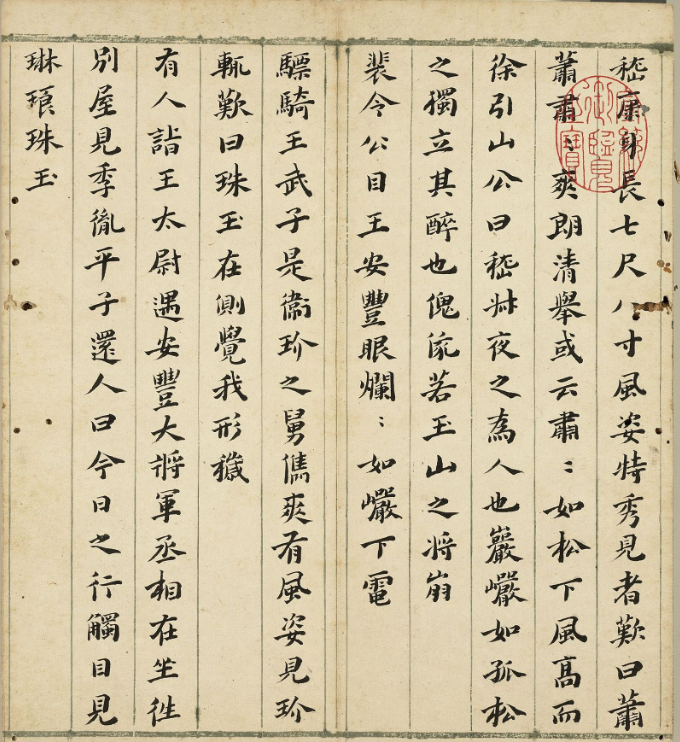 嵇康身長七尺八寸風姿特秀見者歎曰蕭
蕭肅〻爽朗清舉或云肅〻如松下風髙而
徐引山公曰嵇叔夜之為人也巖巖如孤松
之獨立其醉也傀俄若玉山之将崩
裴令公目王安豐眼爛〻如巖下電
驃騎王武子是衛玠之舅儁爽有風姿見玠
輒歎曰珠玉在側覺我形穢
有人詣王太尉遇安豐大將軍丞相在坐往
別屋見季胤平子還人曰今日之行觸目見
琳琅珠玉